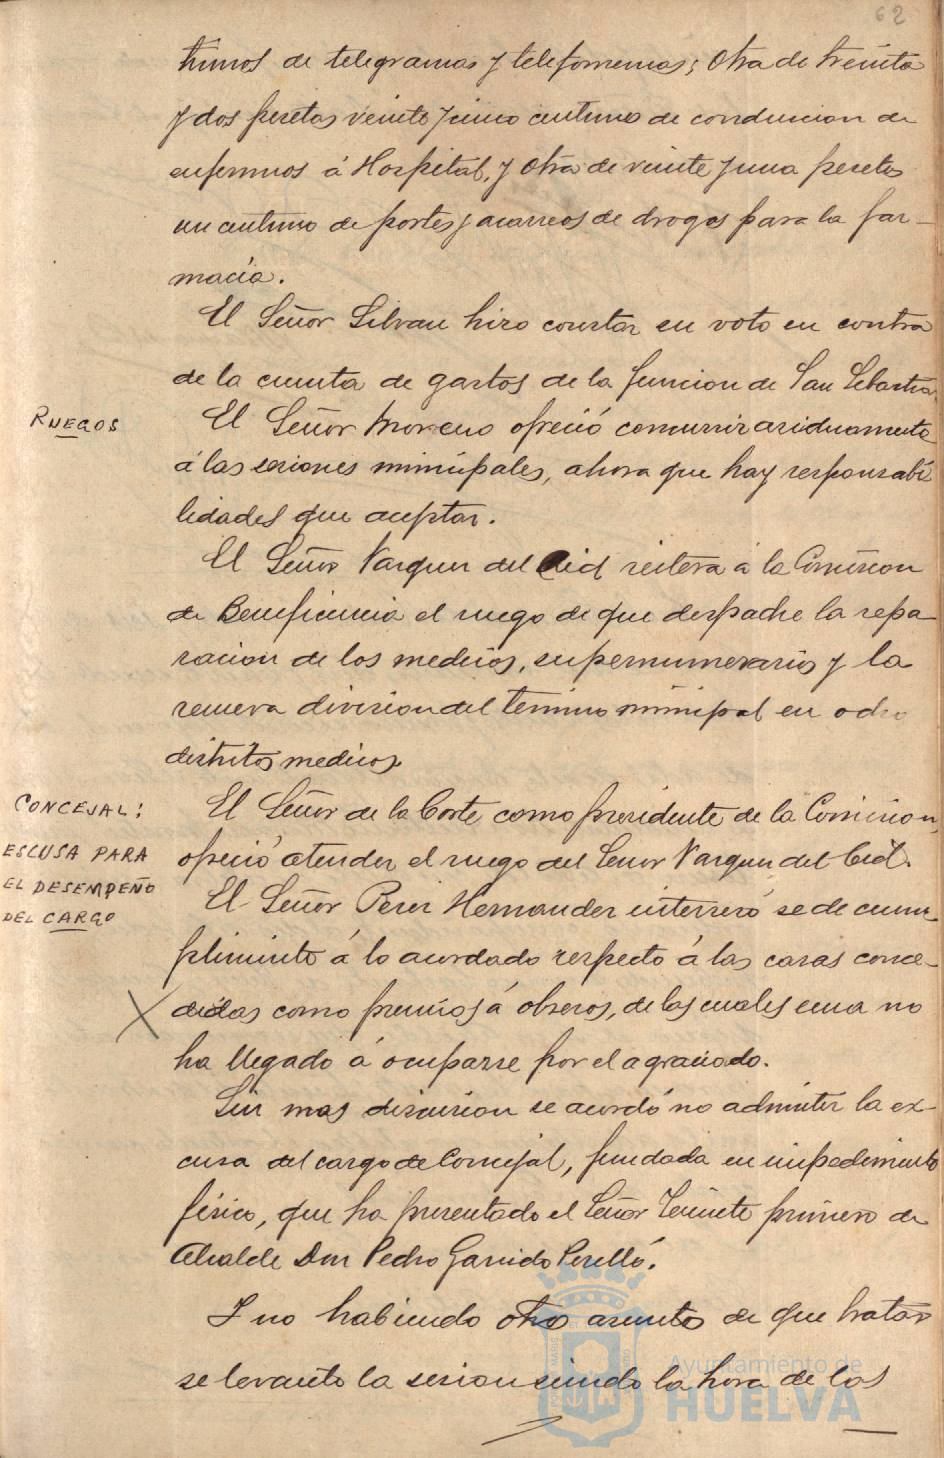 62
timos de telegramas y telefonemas; Otra de treinta
y dos pesetas veinte y cinco centimos de conduccion de
enfermos á Hospital, y Otra de veinte y una pesetas
un centimo de portes y acarreos de drogas para la far-
macia.
El Señor Silvan hizo constar su voto en contra
de la cuenta de gastos de la funcion de San Sebastian
RUEGOS
El Señor Moreno ofreció concurrir asiduamente
á las sesiones municipales, ahora que hay responsabi
lidades que aceptar.
El Señor Vazquez del Cid reitera á la Comision
de Beneficencia el ruego de que despache la repa
racion de los medicos, supernumerarios y la
nueva division del termino municipal en ocho
distritos medicos
CONCEJAL:
ESCUSA PARA
EL DESEMPEÑO
DEL CARGO
El Señor de la Corte como presidente de la Comision,
ofreció atender el ruego del Señor Vazquez del Cid.
El Señor Perez Hernandez interesó se de cum
plimiento á lo acordado respecto á las casas conce-
didas como premios á obreros, de las cuales una no
ha llegado á ocuparse por el agraciado.
Sin mas discusion se acordó no admitir la ex-
cusa del cargo de Concejal, fundada en impedimento
físico, que ha presentado el Señor Teniente primero de
Alcalde Don Pedro Garrido Perelló.
Y no habiendo otro asunto de que tratar
se levantó la sesion siendo la hora de las
Ayuntamiento de
HUELVA